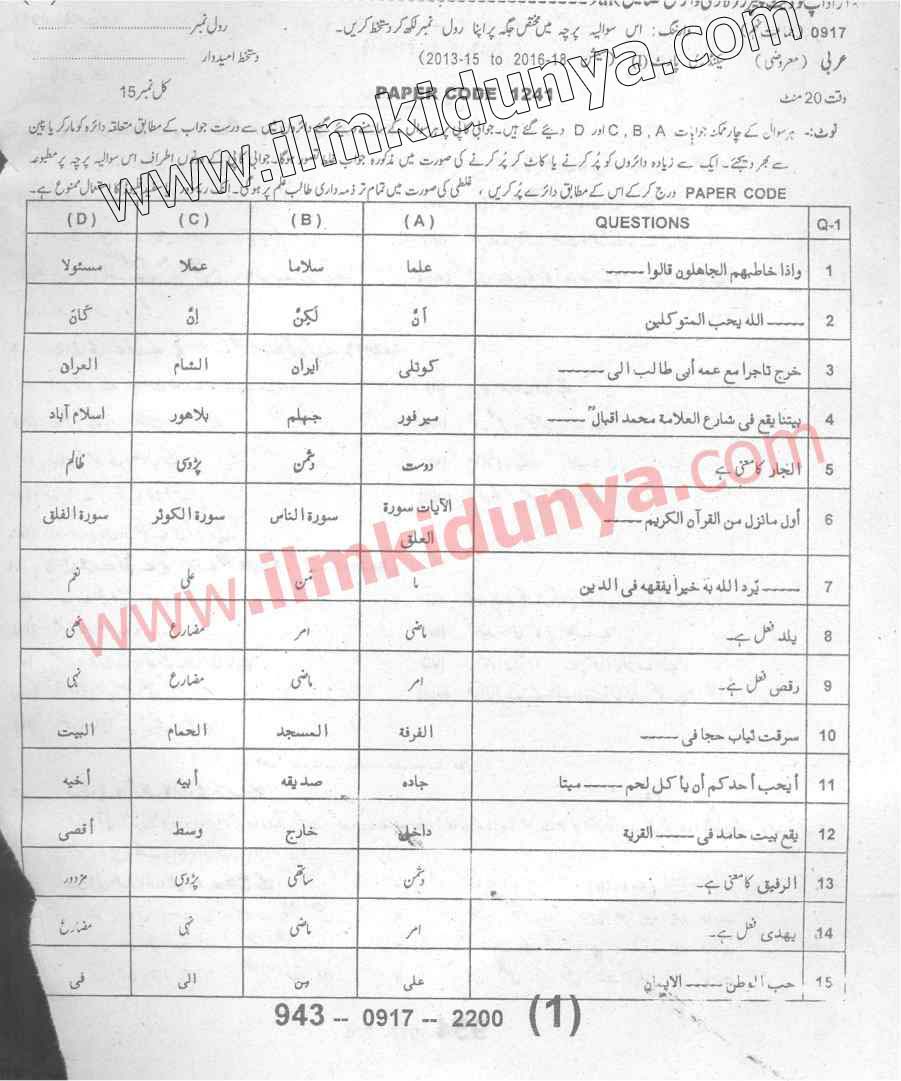 0917
وارننگ: اس سوالیہ پرچہ میں مختص جگہ پر اپنا رول نمبر لکھ کر دستخط کریں۔
رول نمبر
عربی (معروضی)
(2013-15 to 2016-18
دستخط امیدوار
وقت 20 منٹ
PAPER CODE 1241
کل نمبر 15
www.ilmkidunya.com
نوٹ:- ہر سوال کے چار ممکنہ جوابات A, B, C اور D دیئے گئے ہیں۔ جوابی کاپی پر ہر سوال کے سامنے دیئے گئے دائروں میں سے درست جواب کے مطابق متعلقہ دائرہ کو مارکر یا پین
سے بھر دیجئے۔ ایک سے زیادہ دائروں کو پُر کرنے یا کاٹ کر پُر کرنے کی صورت میں مذکورہ جواب غلط تصور ہوگا۔ جوابی کاپی کے دونوں اطراف اس سوالیہ پرچہ پر مطبوعہ
PAPER CODE درج کر کے اس کے مطابق دائرے پُر کریں، غلطی کی صورت میں تمام تر ذمہ داری طالب علم پر ہوگی۔ استعمال ممنوع ہے۔
Q-1 QUESTIONS (A) (B) (C) (D)
1 واذا خاطبهم الجاهلون قالوا ----- علما سلاما عملا مسئولا
2 ----- الله يحب المتوكلين أَنَّ لَكِنَّ اِنَّ كَانَ
3 خرج تاجرا مع عمه أبى طالب الى ------ کوٹلی ایران الشام العراق
4 بيتنا يقع فى شارع العلامة محمد اقبالؒ ----- میرفور جہلم بلاهور اسلام آباد
5 الجار کا معنی ہے دوست دشمن پڑوسی ظالم
6 أول مانزل من القرآن الكريم ----- الآيات سورة العلق سورة الناس سورة الكوثر سورة الفلق
7 ----- يّرد الله بهٖ خيراً يفقهه فى الدين ما مَن علی نعم
8 یلد فعل ہے۔ ماضی امر مضارع نھی
9 رقص فعل ہے۔ امر ماضی مضارع نہی
10 سرقت ثياب حجا فى ----- الغرفة المسجد الحمام البيت
11 أيحب أحدكم أن ياكل لحم ----- ميتا جاده صديقه أبيه أخيه
12 يقع بيت حامد فى ----- القرية داخل خارج وسط أقصى
13 الرفیق کا معنی ہے۔ دشمن ساتھی پڑوسی مزدور
14 یهدی فعل ہے۔ امر ماضی نہی مضارع
15 حب الوطن ----- الايمان على من الى فى
www.ilmkidunya.com
943 -- 0917 -- 2200 (1)